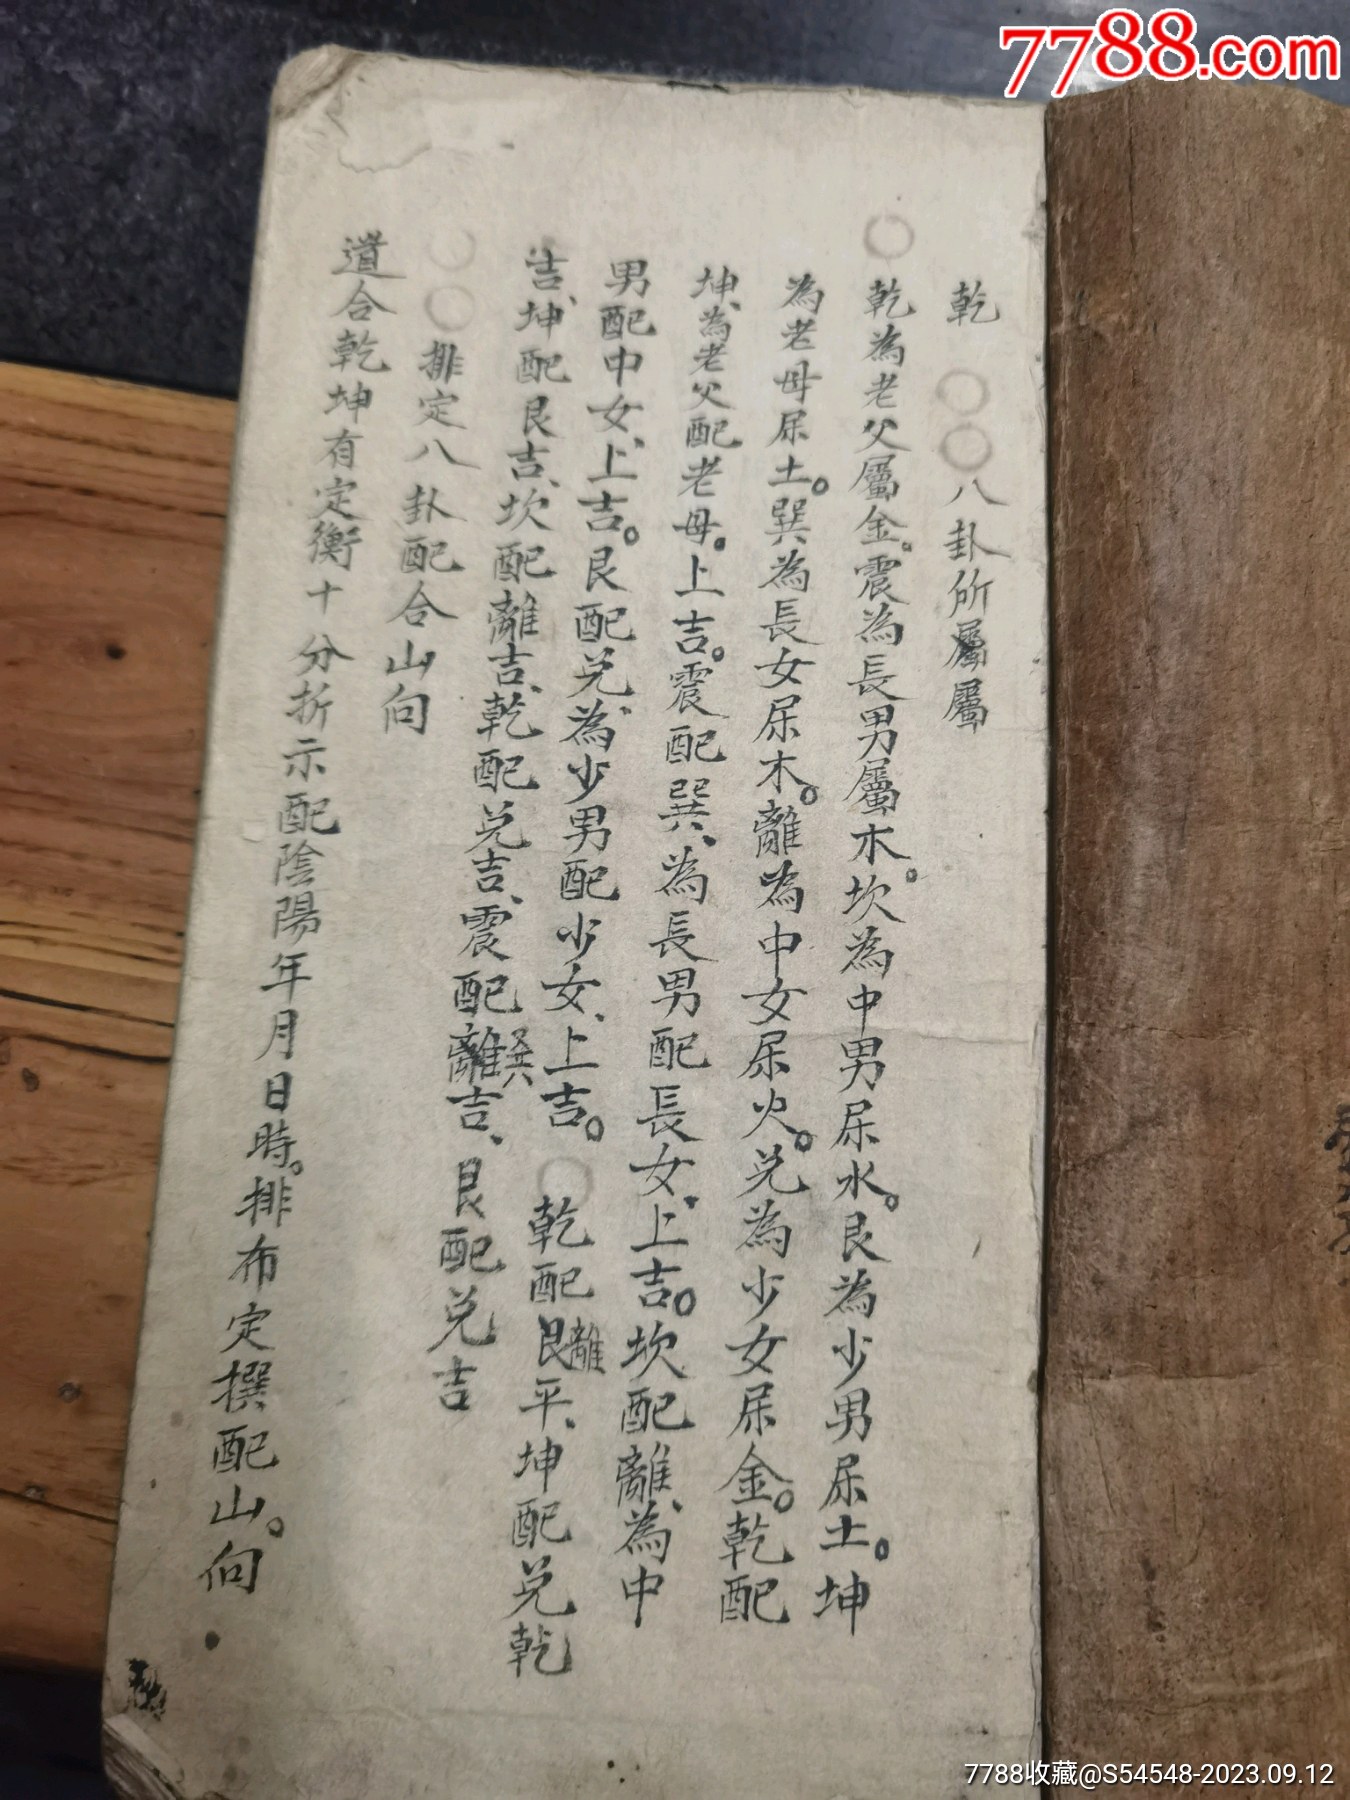 7788.com
乾 〇〇八卦所屬屬
〇乾為老父屬金。震為長男屬木。坎為中男尿水。艮為少男尿土。坤
為老母尿土。巽為長女尿木。離為中女尿火。兑為少女尿金。乾配
坤、為老父配老母。上吉。震配巽、為長男配長女、上吉。坎配離、為中
男配中女、上吉。艮配兑、為少男配少女、上吉。〇乾配艮離平、坤配兑乾
吉、坤配艮吉、坎配離吉、乾配兑吉、震配離巽吉、艮配兑吉
〇〇排定八卦配合山向
道合乾坤有定衡十分折示配陰陽年月日時。排布定撰配山。向
7788收藏@S54548-2023.09.12